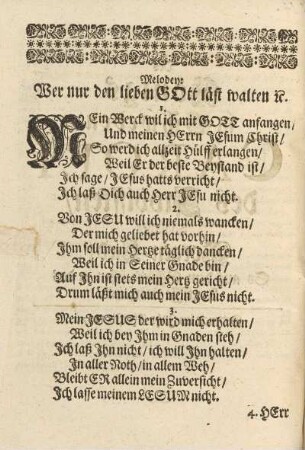 Melodey:
Wer nur den lieben GOtt läst walten ꝛc.
1.
MEin Werck wil ich mit GOTT anfangen/
Und meinen HErrn JEsum Christ/
So werd ich allzeit Hülff erlangen/
Weil Er der beste Beystand ist/
Jch sage/ JEsus hatts verricht/
Jch laß Dich auch Herr JEsu nicht.
2.
Von JESU will ich niemals wancken/
Der mich geliebet hat vorhin/
Jhm soll mein Hertze täglich dancken/
Weil ich in Seiner Gnade bin/
Auf Jhn ist stets mein Hertz gericht/
Drum läßt mich auch mein JEsus nicht.
3.
Mein JESUS der wird mich erhalten/
Weil ich bey Jhm in Gnaden steh/
Jch laß Jhn nicht/ ich will Jhn halten/
Jn aller Noth/ in allem Weh/
Bleibt ER allein mein Zuversicht/
Jch lasse meinem LESUM nicht.
4. HErr